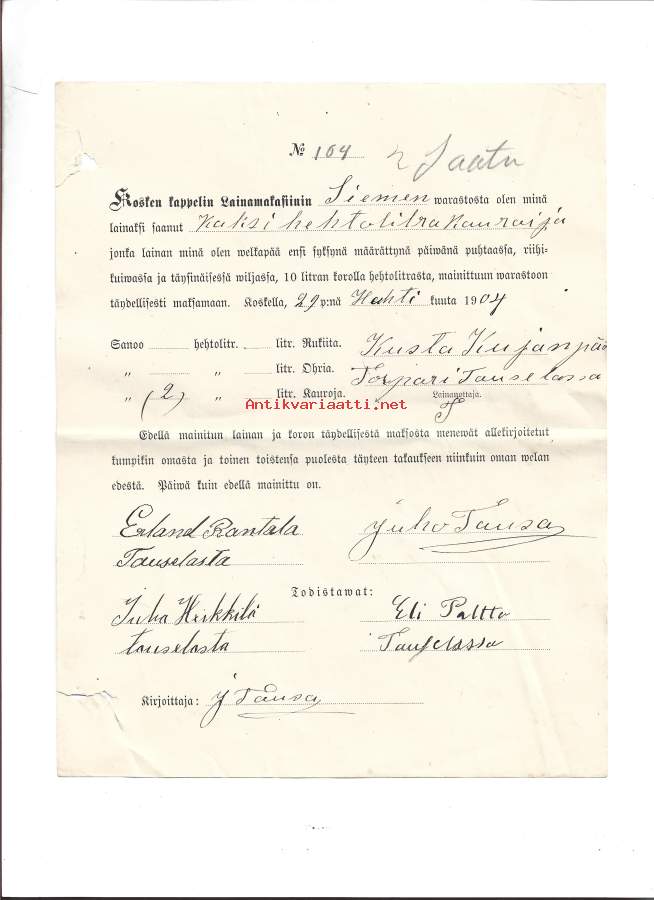 № 104 2 Saatu
Kosken kappelin Lainamakasiinin Siemen warastosta olen minä
lainaksi saanut Kaksi hehtolitra Kauroija
jonka lainan minä olen welkapää ensi syksynä määrättynä päiwänä puhtaassa, riihi-
kuiwassa ja täysinäisessä wiljassa, 10 litran korolla hehtolitrasta, mainittuun warastoon
täydellisesti maksamaan. Koskella, 29 p:nä Huhti kuuta 1904
Sanoo hehtolitr. litr. Rukiita. Kusta Kujanpää
„ „ litr. Ohria. Torpari Tauselassa
„ (2) „ litr. Kauroja. Lainanottaja.
Antikvariaatti.net
Edellä mainitun lainan ja koron täydellisestä maksosta menewät allekirjoitetut
kumpikin omasta ja toinen toistensa puolesta täyteen takaukseen niinkuin oman welan
edestä. Päiwä kuin edellä mainittu on.
Erland Rantala Juho Tausa
Tauselasta
Todistawat:
Juha Heikkilä Eli Paltta
tauselasta Tauselassa
Kirjoittaja: J Tausa